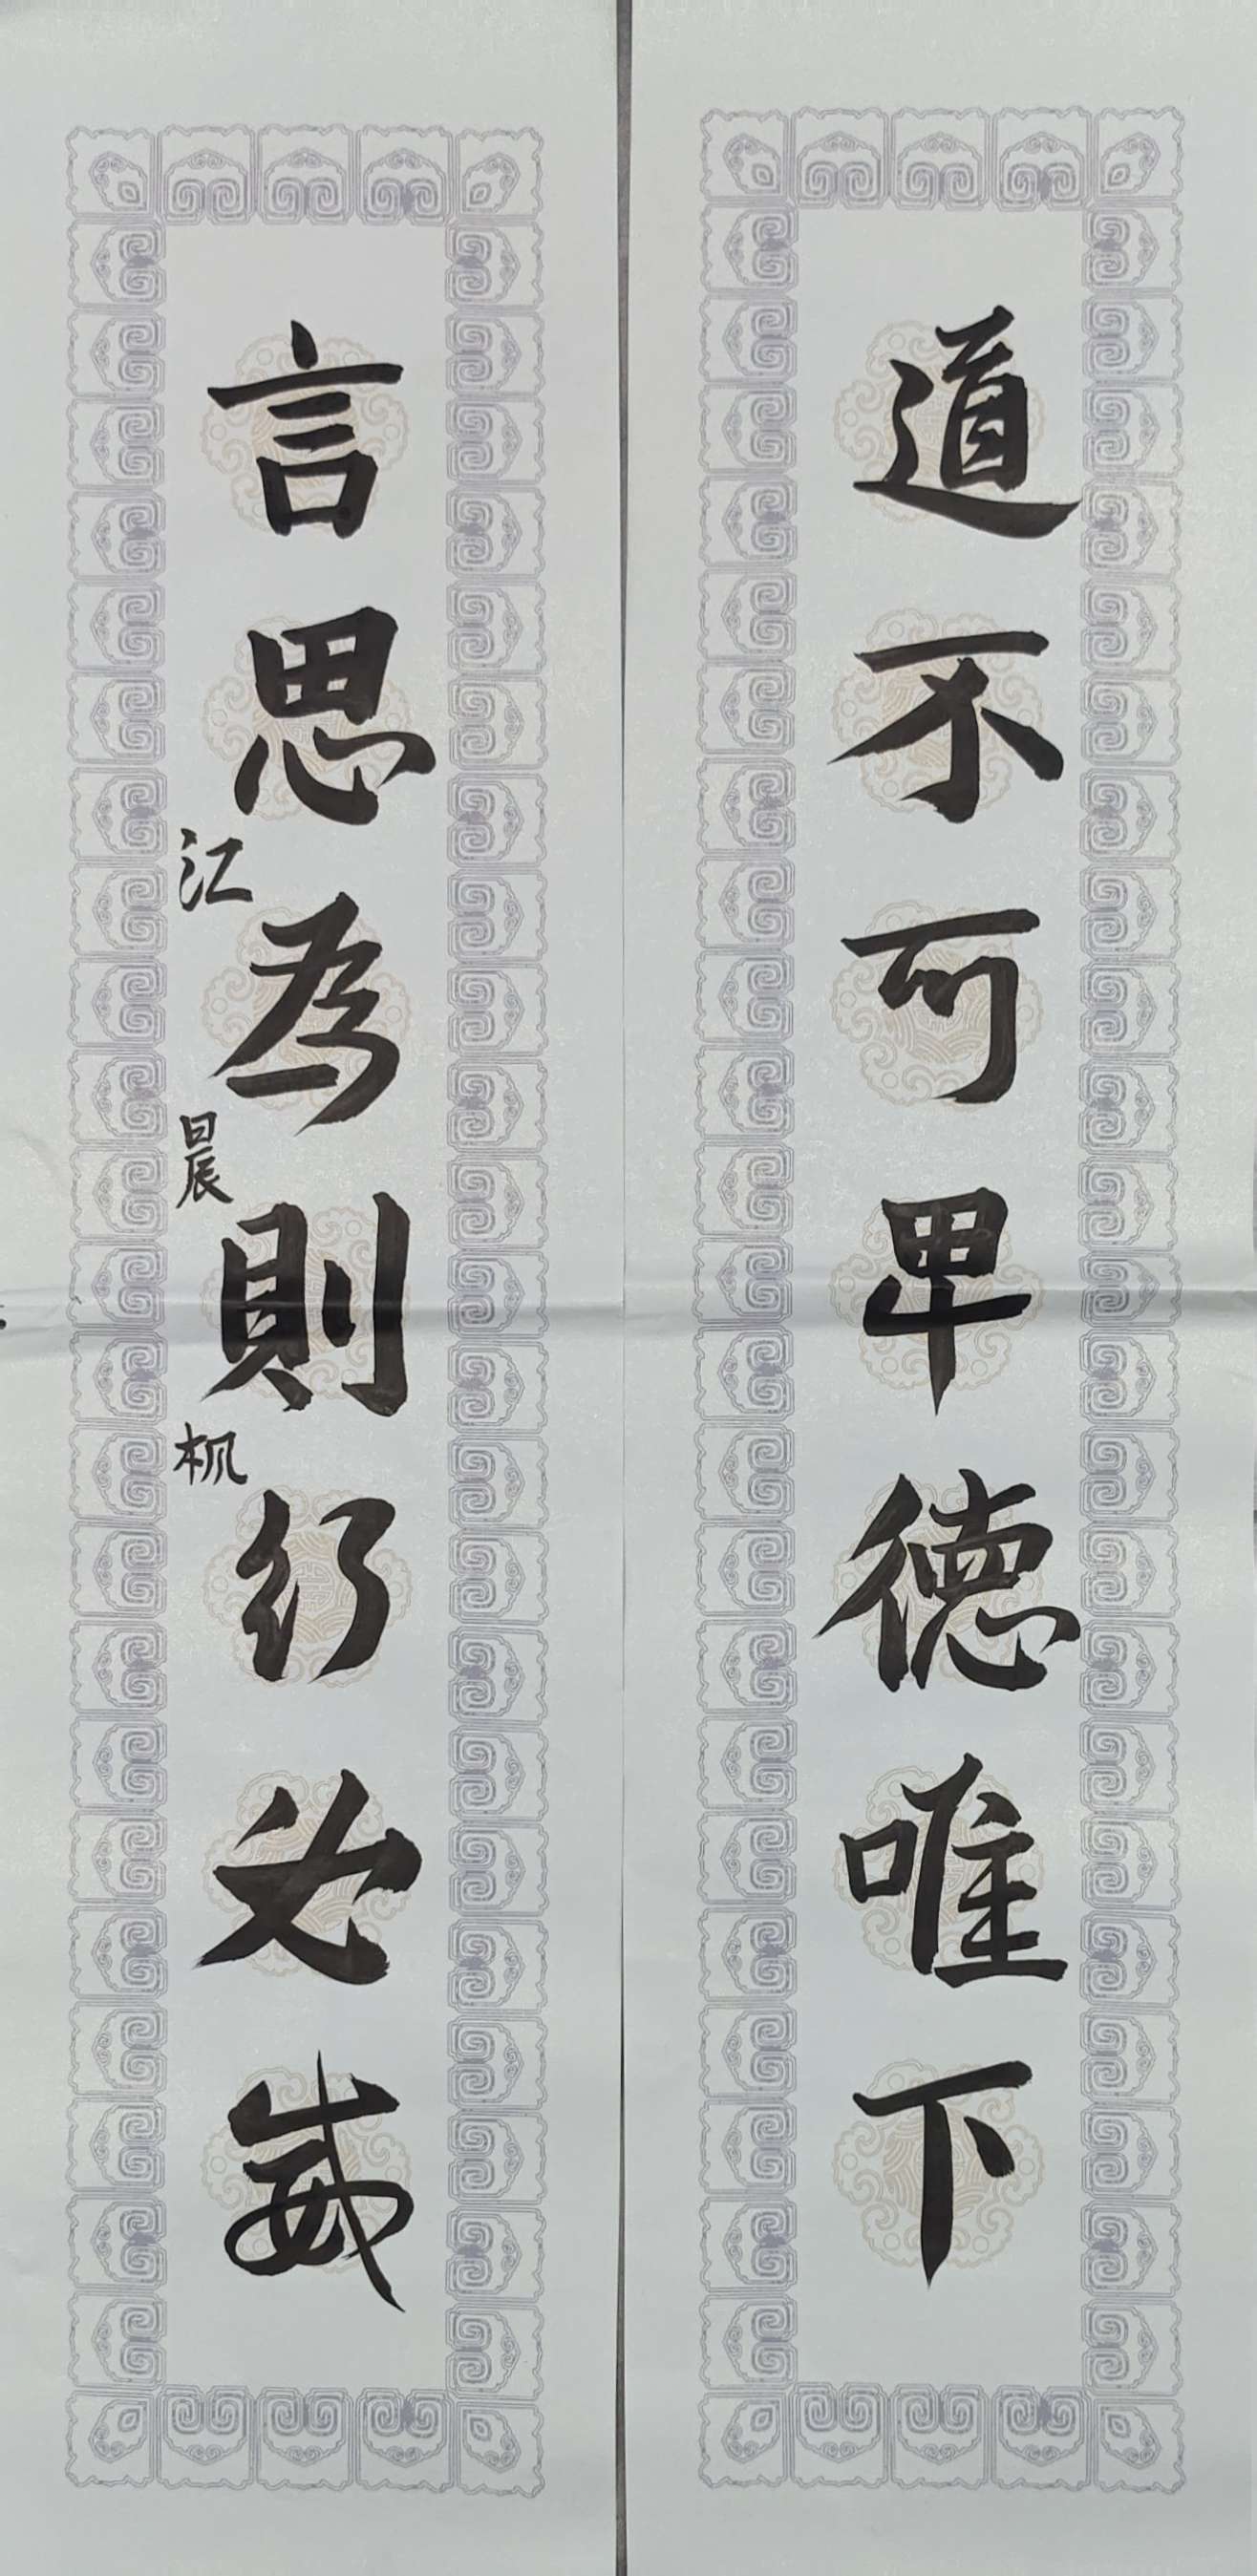 道不可卑德唯下
言思為則行必
江晨